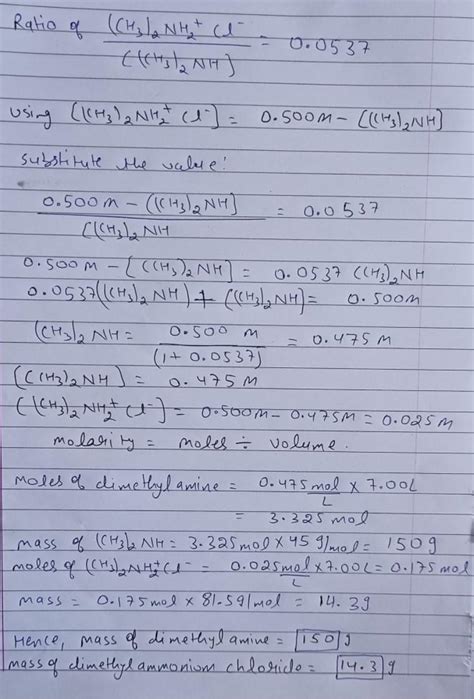 Ratio of ((CH3)2NH2+ Cl- / ((CH3)2NH] = 0.0537
using [(CH3)2NH2+ Cl-] = 0.500M - [(CH3)2NH]
substitute the value:
0.500M - ((CH3)2NH] / [(CH3)2NH = 0.0537
0.500M - [(CH3)2NH] = 0.0537 (CH3)2NH
0.0537((CH3)2NH) + ((CH3)2NH] = 0.500M
(CH3)2NH = 0.500 M / (1+0.0537) = 0.475 M
[(CH3)2NH] = 0.475 M
[(CH3)2NH2+ Cl-] = 0.500M - 0.475M = 0.025M
molarity = moles ÷ volume.
moles of dimethylamine = 0.475 mol/L × 7.00L
= 3.325 mol
mass of (CH3)2NH = 3.325mol × 45 g/mol = 150g
moles of (CH3)2NH2+Cl- = 0.025mol/L × 7.00L = 0.175mol
mass = 0.175mol × 81.5g/mol = 14.3g
Hence, mass of dimethylamine = 150 g
mass of dimethylammonium chloride = 14.3 g